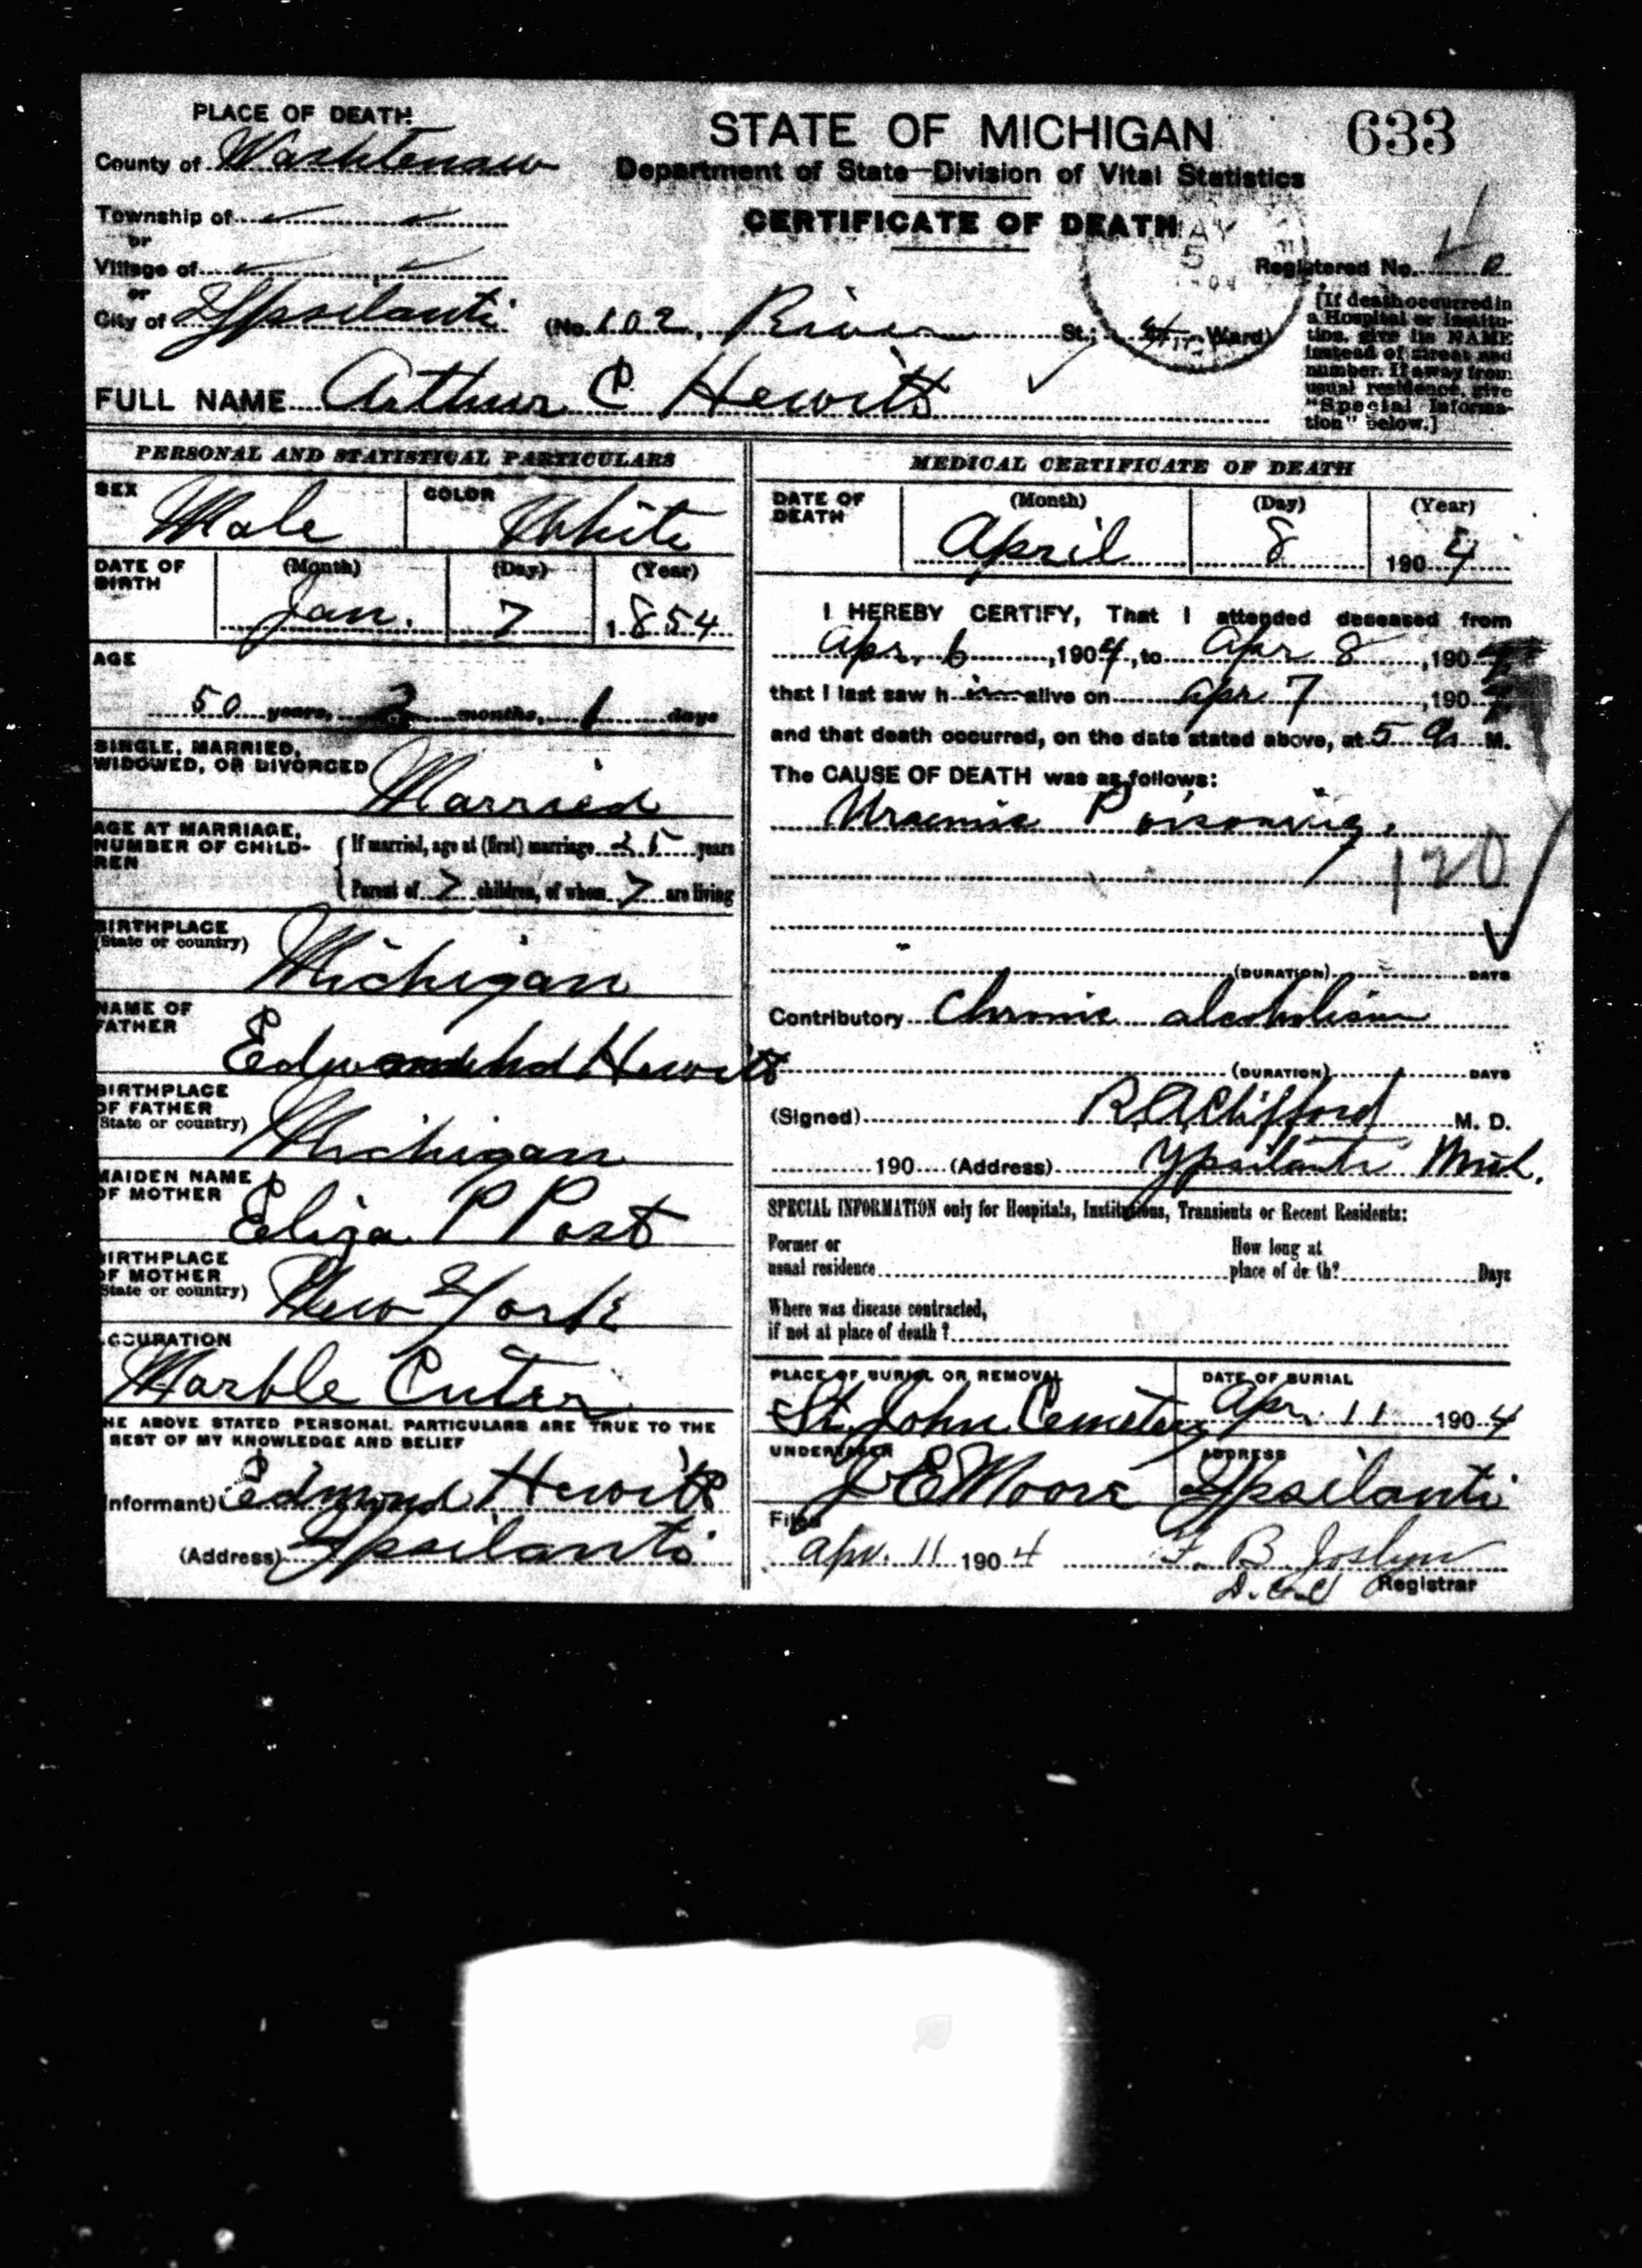 PLACE OF DEATH
County of Washtenaw
Township of
or
Village of
or
City of Ypsilanti (No. 102, River St.; Ward)
STATE OF MICHIGAN
Department of State—Division of Vital Statistics
CERTIFICATE OF DEATH
633
Registered No.
[If death occurred in
a Hospital or Institu-
tion, give its NAME
instead of street and
number. If away from
usual residence give
"Special Informa-
tion" below.]
FULL NAME Arthur C Hewitt
PERSONAL AND STATISTICAL PARTICULARS
SEX Male COLOR White
DATE OF BIRTH (Month) (Day) (Year)
Jan. 7 1854
AGE
50 years, months, 1 days
SINGLE, MARRIED,
WIDOWED, OR DIVORCED Married
AGE AT MARRIAGE,
NUMBER OF CHILD-
REN
If married, age at (first) marriage years
Parent of 7 children, of whom 7 are living
BIRTHPLACE
(State or country) Michigan
NAME OF
FATHER Hewitt
BIRTHPLACE
OF FATHER
(State or country) Michigan
MAIDEN NAME
OF MOTHER Eliza P Post
BIRTHPLACE
OF MOTHER
(State or country) New York
OCCUPATION
Marble Cuter
THE ABOVE STATED PERSONAL PARTICULARS ARE TRUE TO THE
BEST OF MY KNOWLEDGE AND BELIEF
Informant) Edmond Hewitt
(Address) Ypsilanti
MEDICAL CERTIFICATE OF DEATH
DATE OF DEATH (Month) (Day) (Year)
April 8 1904
I HEREBY CERTIFY, That I attended deceased from
Apr. 6, 1904, to Apr 8, 190
that I last saw him alive on Apr 7, 190
and that death occurred, on the date stated above, at 5 a M.
The CAUSE OF DEATH was as follows:
Uraemic Poisoning.
120
(DURATION) DAYS
Contributory Chronic alcoholism
(DURATION) DAYS
(Signed) R A Clifford M. D.
190 (Address) Ypsilanti Mich.
SPECIAL INFORMATION only for Hospitals, Institutions, Transients or Recent Residents:
Former or
usual residence
How long at
place of death? Days
Where was disease contracted,
if not at place of death?
PLACE OF BURIAL OR REMOVAL
St. John Cemetery
DATE OF BURIAL
Apr. 11 1904
UNDERTAKER
J E Moore
ADDRESS
Ypsilanti
Filed
Apr. 11 1904 F. B. Joslyn
Registrar